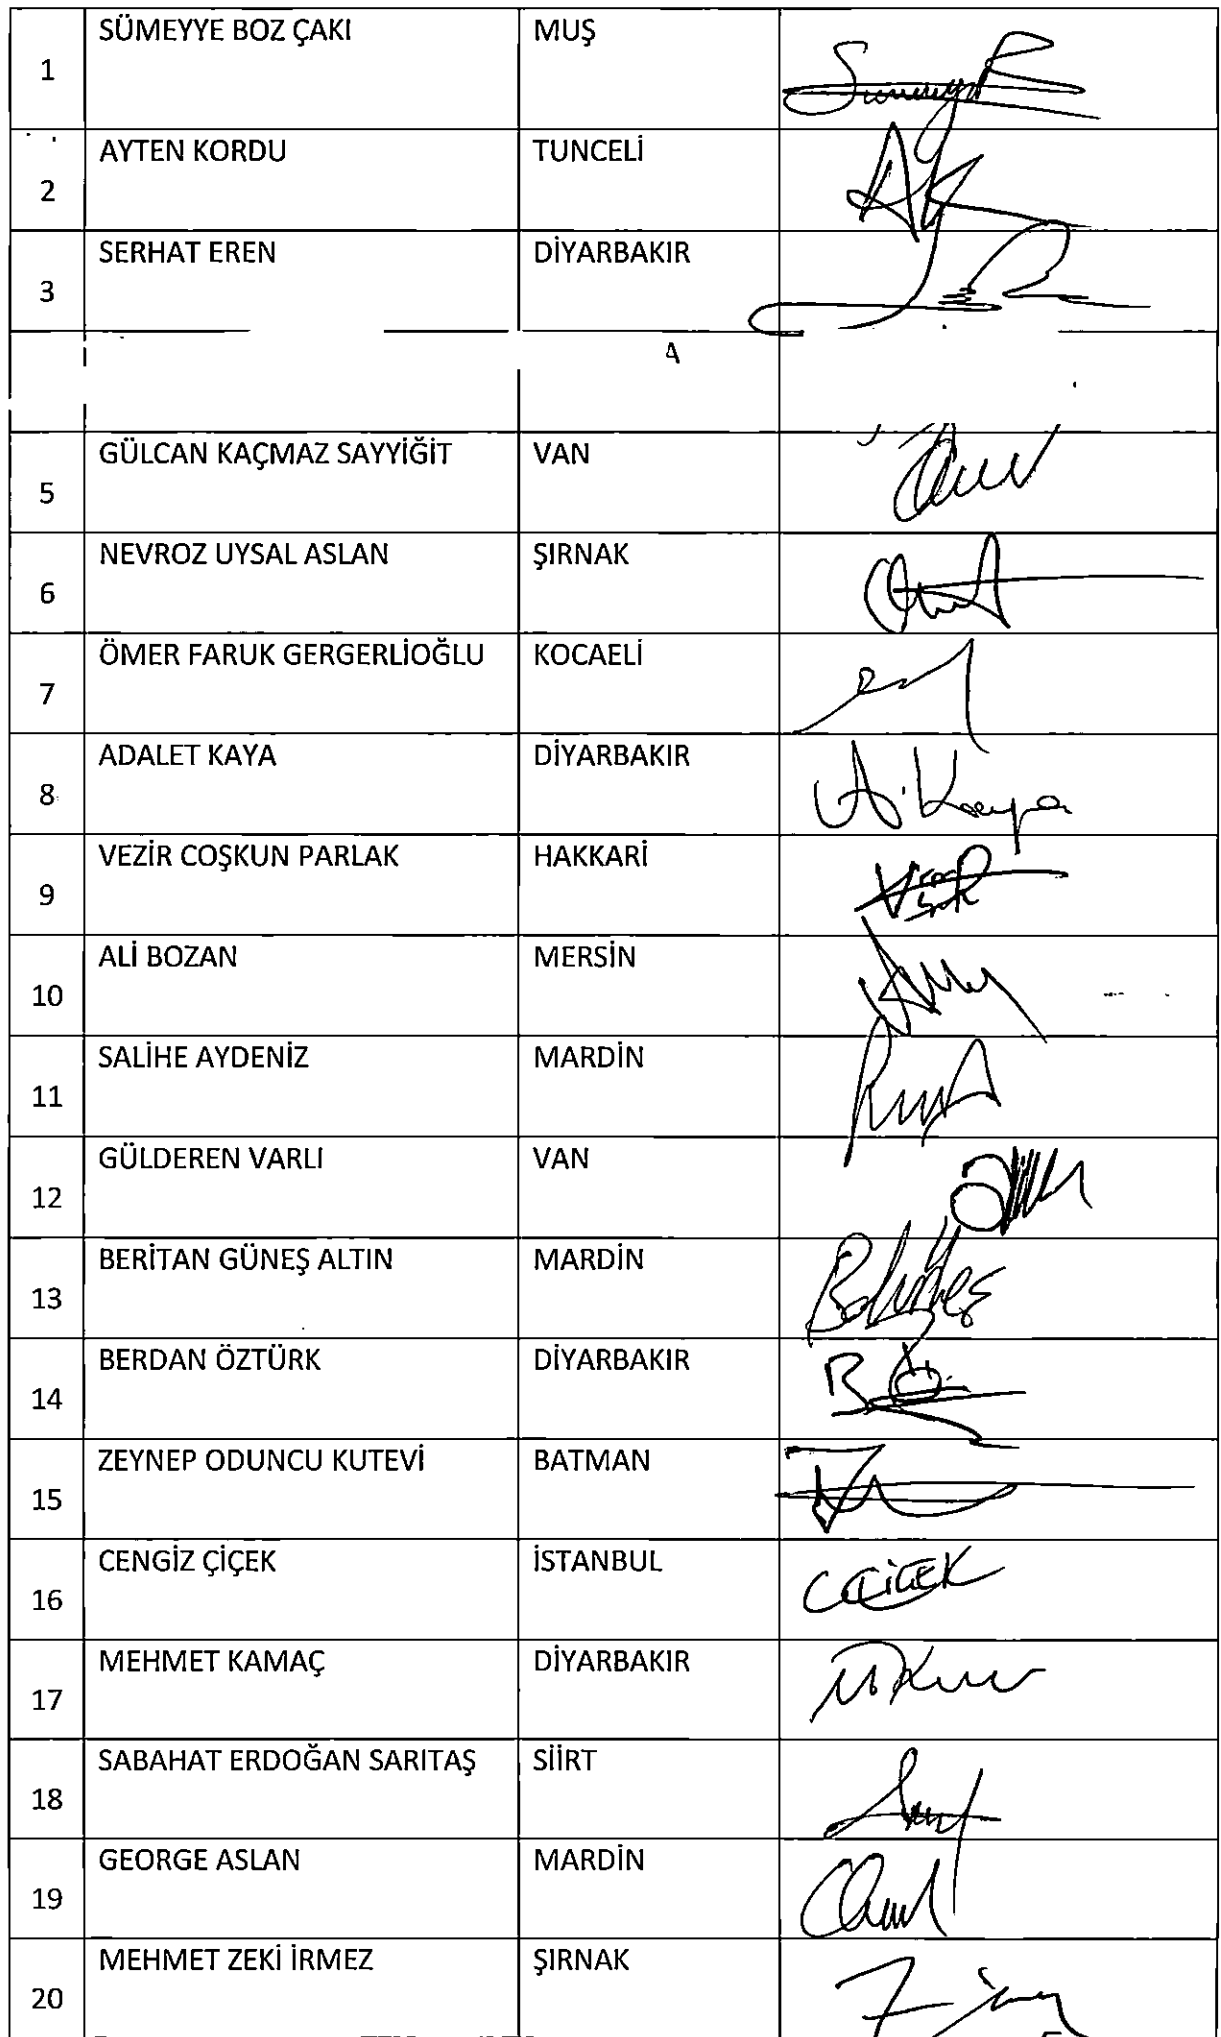 1 SÜMEYYE BOZ ÇAKI MUŞ
2 AYTEN KORDU TUNCELİ
3 SERHAT EREN DİYARBAKIR
5 GÜLCAN KAÇMAZ SAYYİĞİT VAN
6 NEVROZ UYSAL ASLAN ŞIRNAK
7 ÖMER FARUK GERGERLİOĞLU KOCAELİ
8 ADALET KAYA DİYARBAKIR A. Kaya
9 VEZİR COŞKUN PARLAK HAKKARİ
10 ALİ BOZAN MERSİN
11 SALİHE AYDENİZ MARDİN
12 GÜLDEREN VARLI VAN
13 BERİTAN GÜNEŞ ALTIN MARDİN
14 BERDAN ÖZTÜRK DİYARBAKIR
15 ZEYNEP ODUNCU KUTEVİ BATMAN
16 CENGİZ ÇİÇEK İSTANBUL
17 MEHMET KAMAÇ DİYARBAKIR
18 SABAHAT ERDOĞAN SARITAŞ SİİRT
19 GEORGE ASLAN MARDİN
20 MEHMET ZEKİ İRMEZ ŞIRNAK